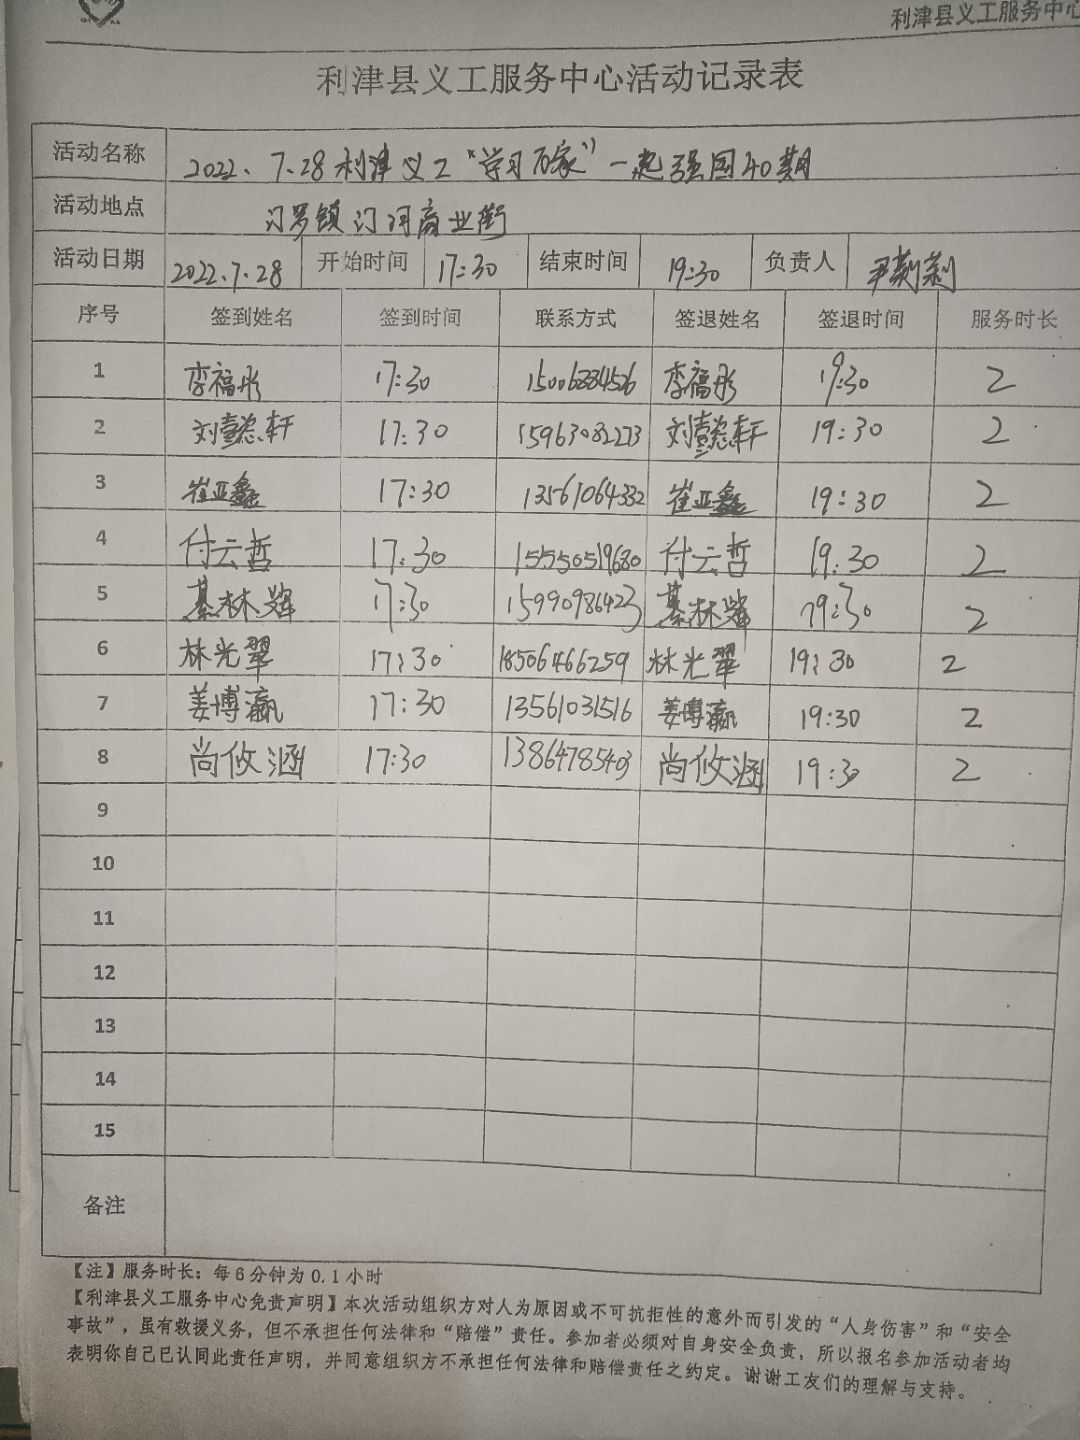 利津县义工服务中心
利津县义工服务中心活动记录表
活动名称 2022、7.28利津义工“学习百家”一起强国40期
活动地点 汀罗镇汀河商业街
活动日期 2022.7.28 开始时间 17:30 结束时间 19:30 负责人 尹
序号 签到姓名 签到时间 联系方式 签退姓名 签退时间 服务时长
1 李福彤 17:30 李福彤 19:30 2
2 刘懿轩 17:30 15963082273 刘懿轩 19:30 2
3 崔亚鑫 17:30 13561064332 崔亚鑫 19:30 2
4 付云哲 17:30 15550519680 付云哲 19:30 2
5 綦林 17:30 15990986423 綦林 19:30 2
6 林光翠 17:30 18506466259 林光翠 19:30 2
7 姜博瀛 17:30 13561031516 姜博瀛 19:30 2
8 尚攸涵 17:30 13864785403 尚攸涵 19:30 2
9
10
11
12
13
14
15
备注
【注】服务时长：每6分钟为0.1小时
【利津县义工服务中心免责声明】本次活动组织方对人为原因或不可抗拒性的意外而引发的“人身伤害”和“安全
事故”，虽有救援义务，但不承担任何法律和“赔偿”责任。参加者必须对自身安全负责，所以报名参加活动者均
表明你自己已认同此责任声明，并同意组织方不承担任何法律和赔偿责任之约定。谢谢工友们的理解与支持。